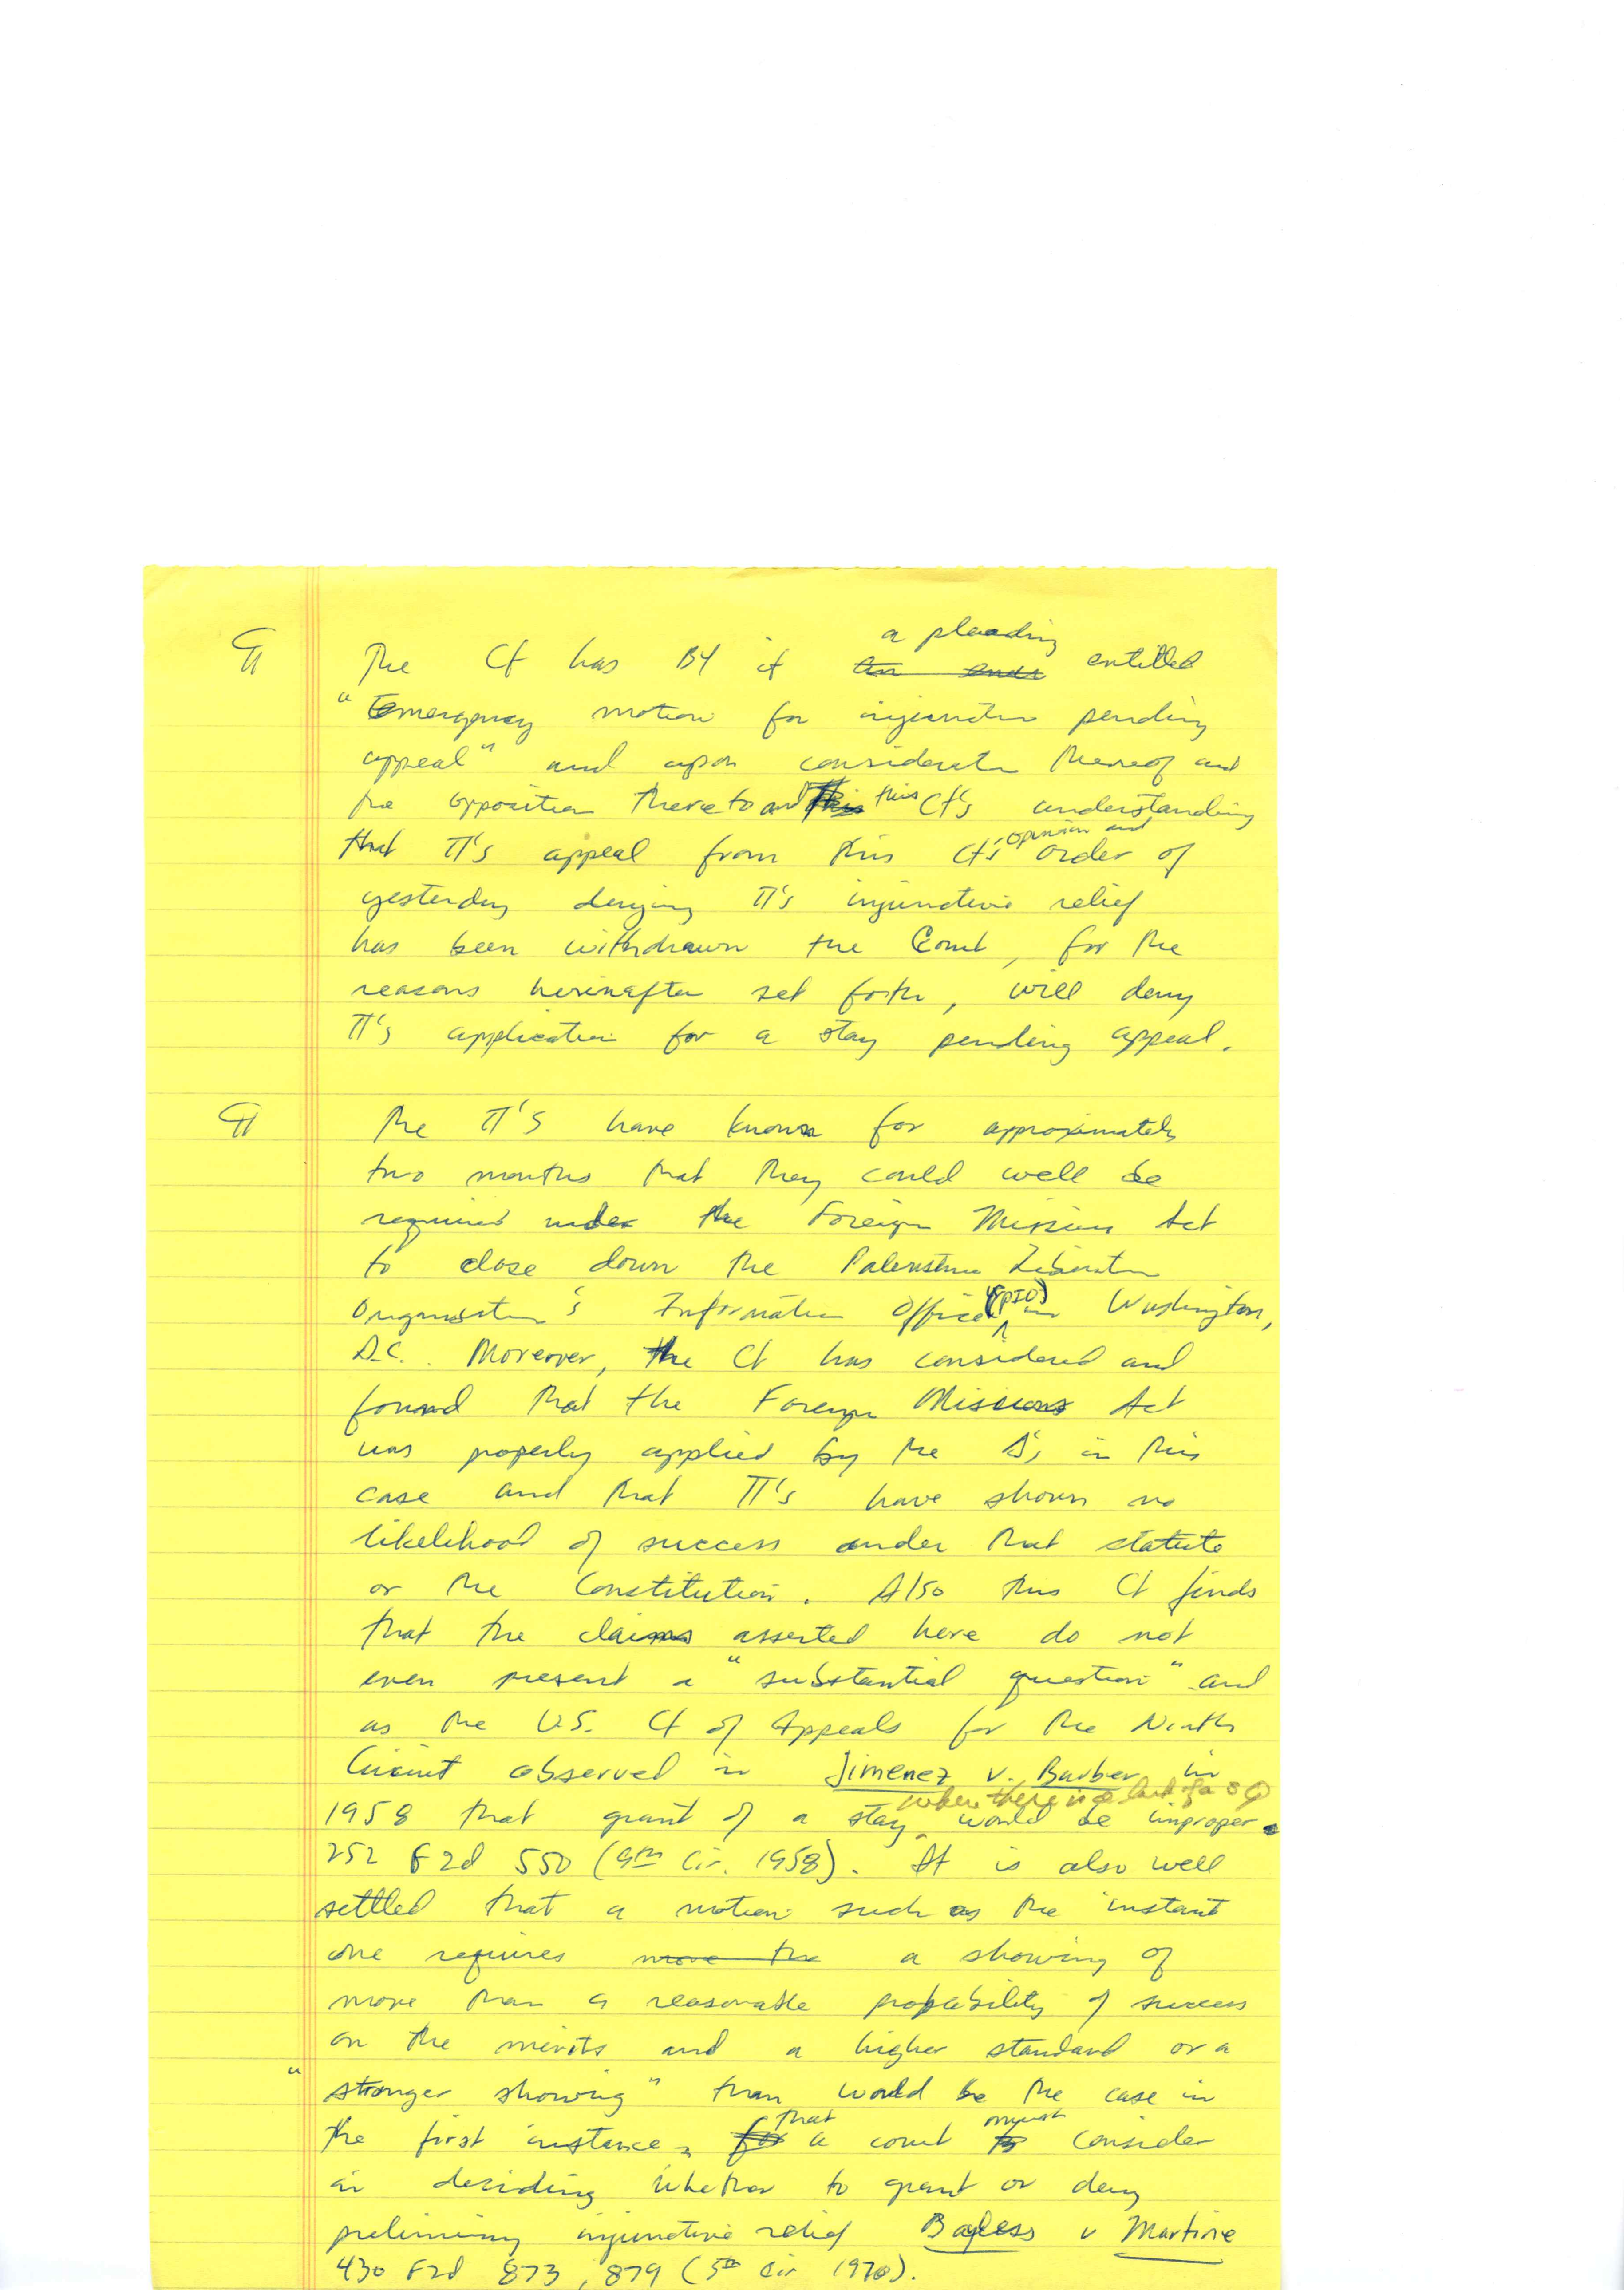 a pleading
¶ The Ct has B4 it entitled
"Emergency motion for injunction pending
appeal" and upon consideration thereof and
the opposition thereto and this Ct's understanding
opinion and
that π's appeal from this Ct's order of
yesterday denying π's injunctive relief
has been withdrawn the Court, for the
reasons hereinafter set forth, will deny
π's application for a stay pending appeal.
¶ The π's have known for approximately
two months that they could well be
required under the Foreign Missions Act
to close down the Palestine Liberation
Organization's Information Office (PIO) in Washington,
D.C. Moreover, the Ct has considered and
found that the Foreign Missions Act
was properly applied by the Δ's in this
case and that π's have shown no
likelihood of success under that statute
or the Constitution. Also this Ct finds
that the claims asserted here do not
even present a "substantial question" and
as the U.S. Ct of Appeals for the Ninth
Circuit observed in Jimenez v. Barber in
when there is a lack of a s Q
1958 that grant of a stay would be improper.
252 F2d 550 (9th Cir. 1958). It is also well
settled that a motion such as the instant
one requires more the a showing of
more than a reasonable probability of success
on the merits and a higher standard or a
"stronger showing" than would be the case in
that must
the first instance, for a court to consider
in deciding whether to grant or deny
preliminary injunctive relief Bayless v Martine
430 F2d 873, 879 (5th Cir 1970).